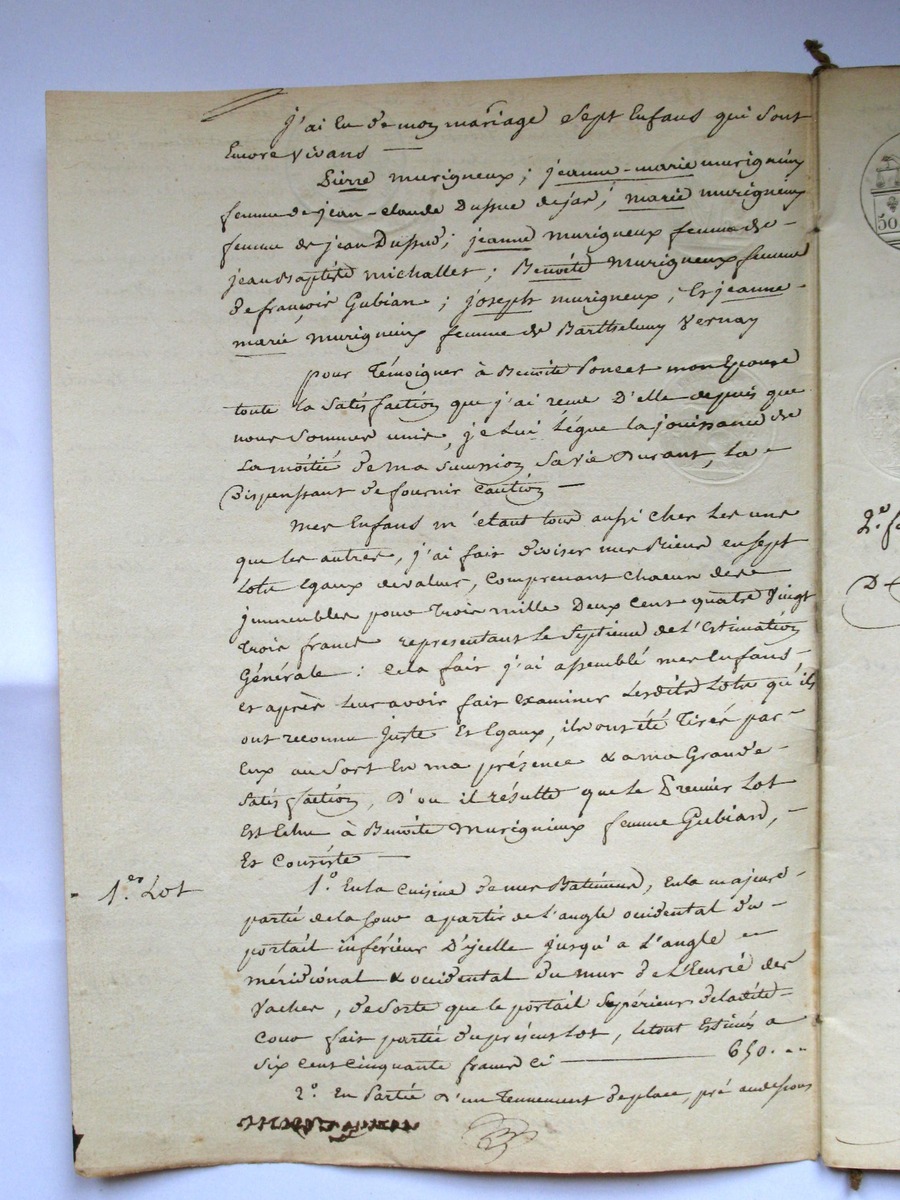 j'ai eu de mon mariage sept enfans qui sont
encore vivans —
Pierre murigneux ; jeanne-marie murigneux
femme de jean-claude Dussuc de jas ; marie murigneux
femme de jean Dussud ; jeanne murigneux femme de -
jean Baptiste michallet ; Benoîte murigneux femme
de françois Gubian ; joseph murigneux ; Et jeanne -
marie murigneux femme de Barthelemy Vernay
pour Témoigner à Benoite Poncet mon Epouse
toute la satisfaction que j'ai reçue D'elle depuis que
nous sommes unis, je Lui Lègue la jouissance de
la moitié de ma succession sa vie Durant, La -
Dispensant de fournir caution —
mes Enfans m'étant tous aussi chers Les uns
que les autres, j'ai fait diviser mes Biens en sept
Lots Egaux de valeur, Comprenant chacun des
jmmeubles pour Trois mille Deux cent quatre Vingt
Trois francs représentant le Septième de L'Estimation
Générale : cela fait j'ai assemblé mes Enfans -
et après Leur avoir fait Examiner Lesdits Lots qu'ils
ont reconnu juste et Egaux, ils ont été Tirés par -
Eux au sort En ma présence & a ma Grande -
satisfaction, D'ou il résulte que le Premier Lot
Est Echu à Benoite Murigneux femme Gubian, -
Et Consiste —
1.er Lot
1.º En la cuisine de mes Batimens, En la majeure -
partie de la Cour a partir de L'angle occidental du -
portail inférieur D'jcelle jusqu'a L'angle -
méridional & occidental du mur de L'Ecurie des
Vaches, de sorte que le portail supérieur de ladite -
Cour fait partie du présent Lot, le tout Estimé a
six cent cinquante francs ci — 650. ..
2.º En Partie d'un Tennement de place, pré au dessous
2.º